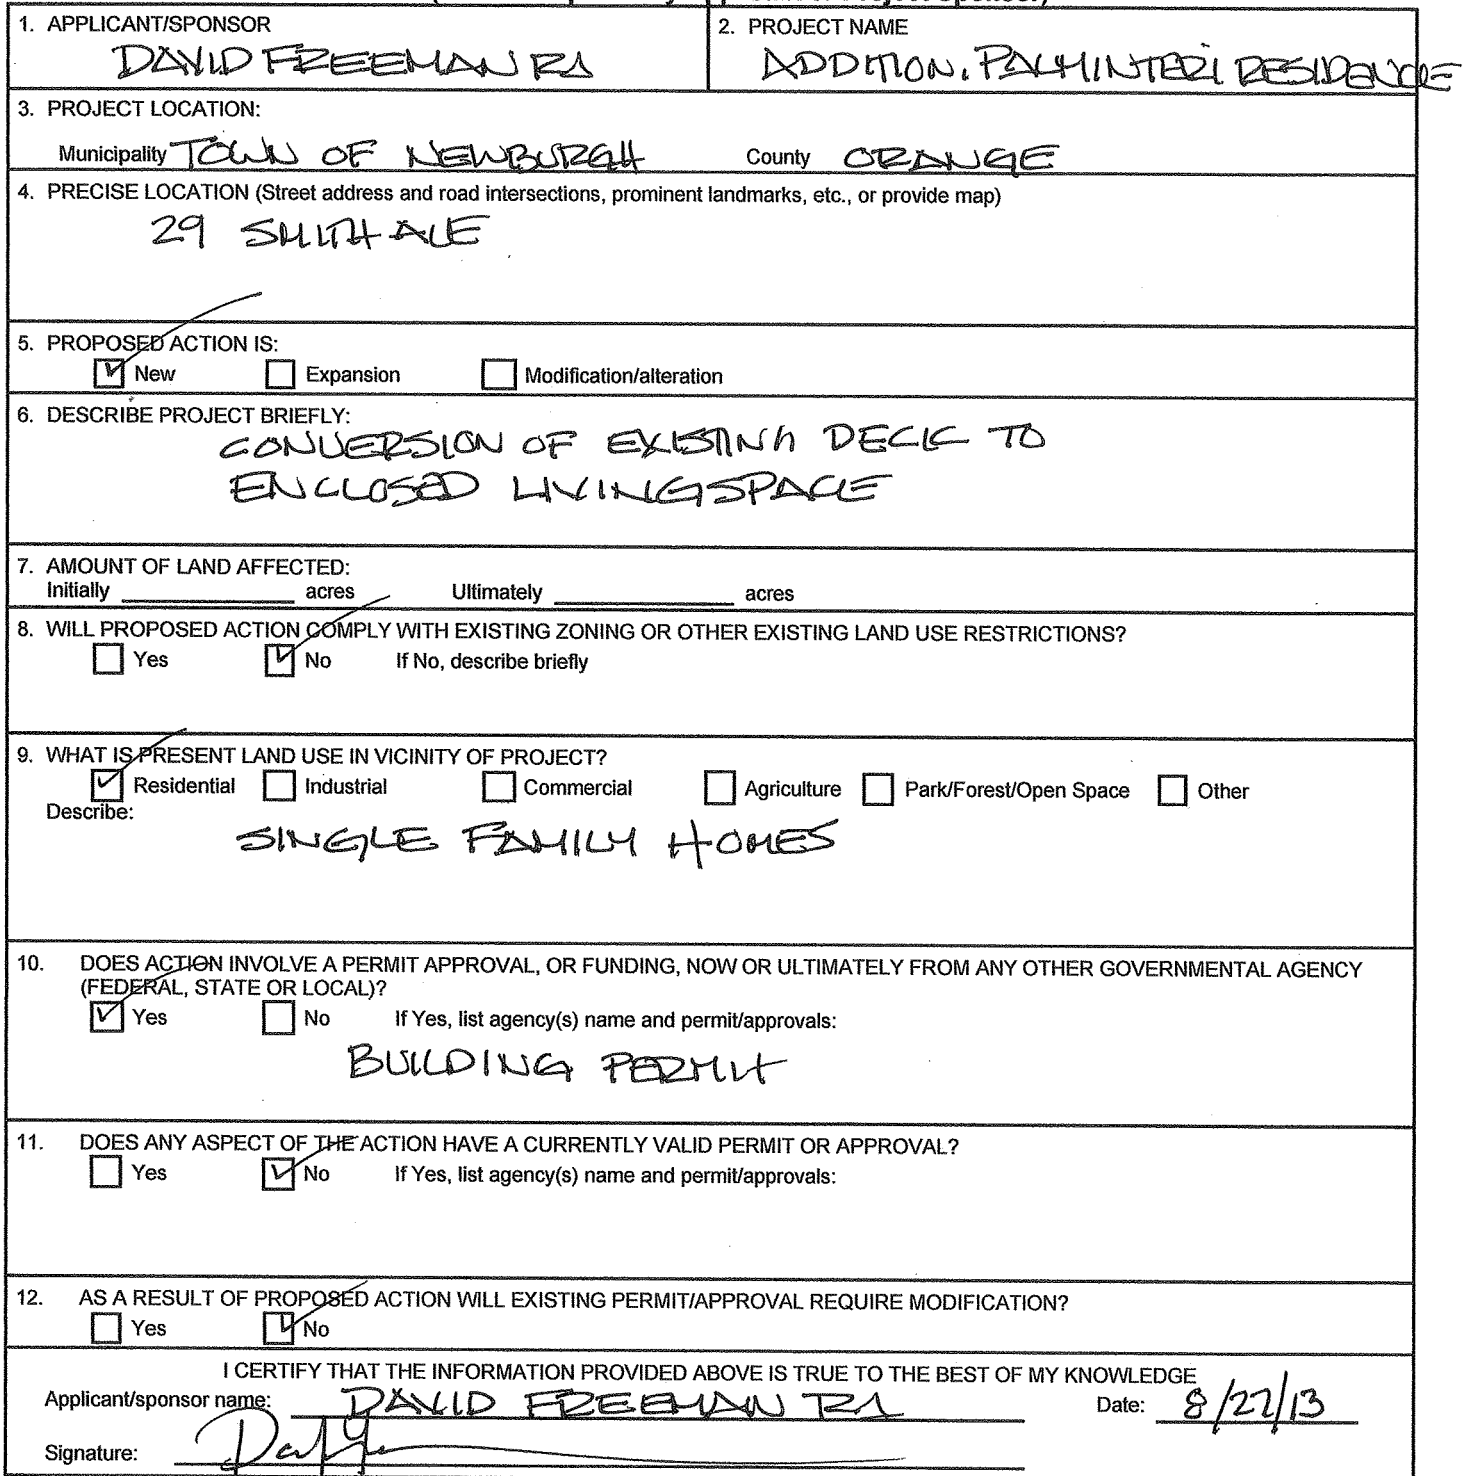 1. APPLICANT/SPONSOR
DAVID FREEMAN RA
2. PROJECT NAME
ADDITION. PALMINTERI RESIDENCE
3. PROJECT LOCATION:
Municipality TOWN OF NEWBURGH County ORANGE
4. PRECISE LOCATION (Street address and road intersections, prominent landmarks, etc., or provide map)
29 SMITH AVE
5. PROPOSED ACTION IS:
New Expansion Modification/alteration
6. DESCRIBE PROJECT BRIEFLY:
CONVERSION OF EXISTING DECK TO
ENCLOSED LIVING SPACE
7. AMOUNT OF LAND AFFECTED:
Initially acres Ultimately acres
8. WILL PROPOSED ACTION COMPLY WITH EXISTING ZONING OR OTHER EXISTING LAND USE RESTRICTIONS?
Yes No If No, describe briefly
9. WHAT IS PRESENT LAND USE IN VICINITY OF PROJECT?
Residential Industrial Commercial Agriculture Park/Forest/Open Space Other
Describe:
SINGLE FAMILY HOMES
10. DOES ACTION INVOLVE A PERMIT APPROVAL, OR FUNDING, NOW OR ULTIMATELY FROM ANY OTHER GOVERNMENTAL AGENCY
(FEDERAL, STATE OR LOCAL)?
Yes No If Yes, list agency(s) name and permit/approvals:
BUILDING PERMIT
11. DOES ANY ASPECT OF THE ACTION HAVE A CURRENTLY VALID PERMIT OR APPROVAL?
Yes No If Yes, list agency(s) name and permit/approvals:
12. AS A RESULT OF PROPOSED ACTION WILL EXISTING PERMIT/APPROVAL REQUIRE MODIFICATION?
Yes No
I CERTIFY THAT THE INFORMATION PROVIDED ABOVE IS TRUE TO THE BEST OF MY KNOWLEDGE
Applicant/sponsor name: DAVID FREEMAN RA Date: 8/27/13
Signature: